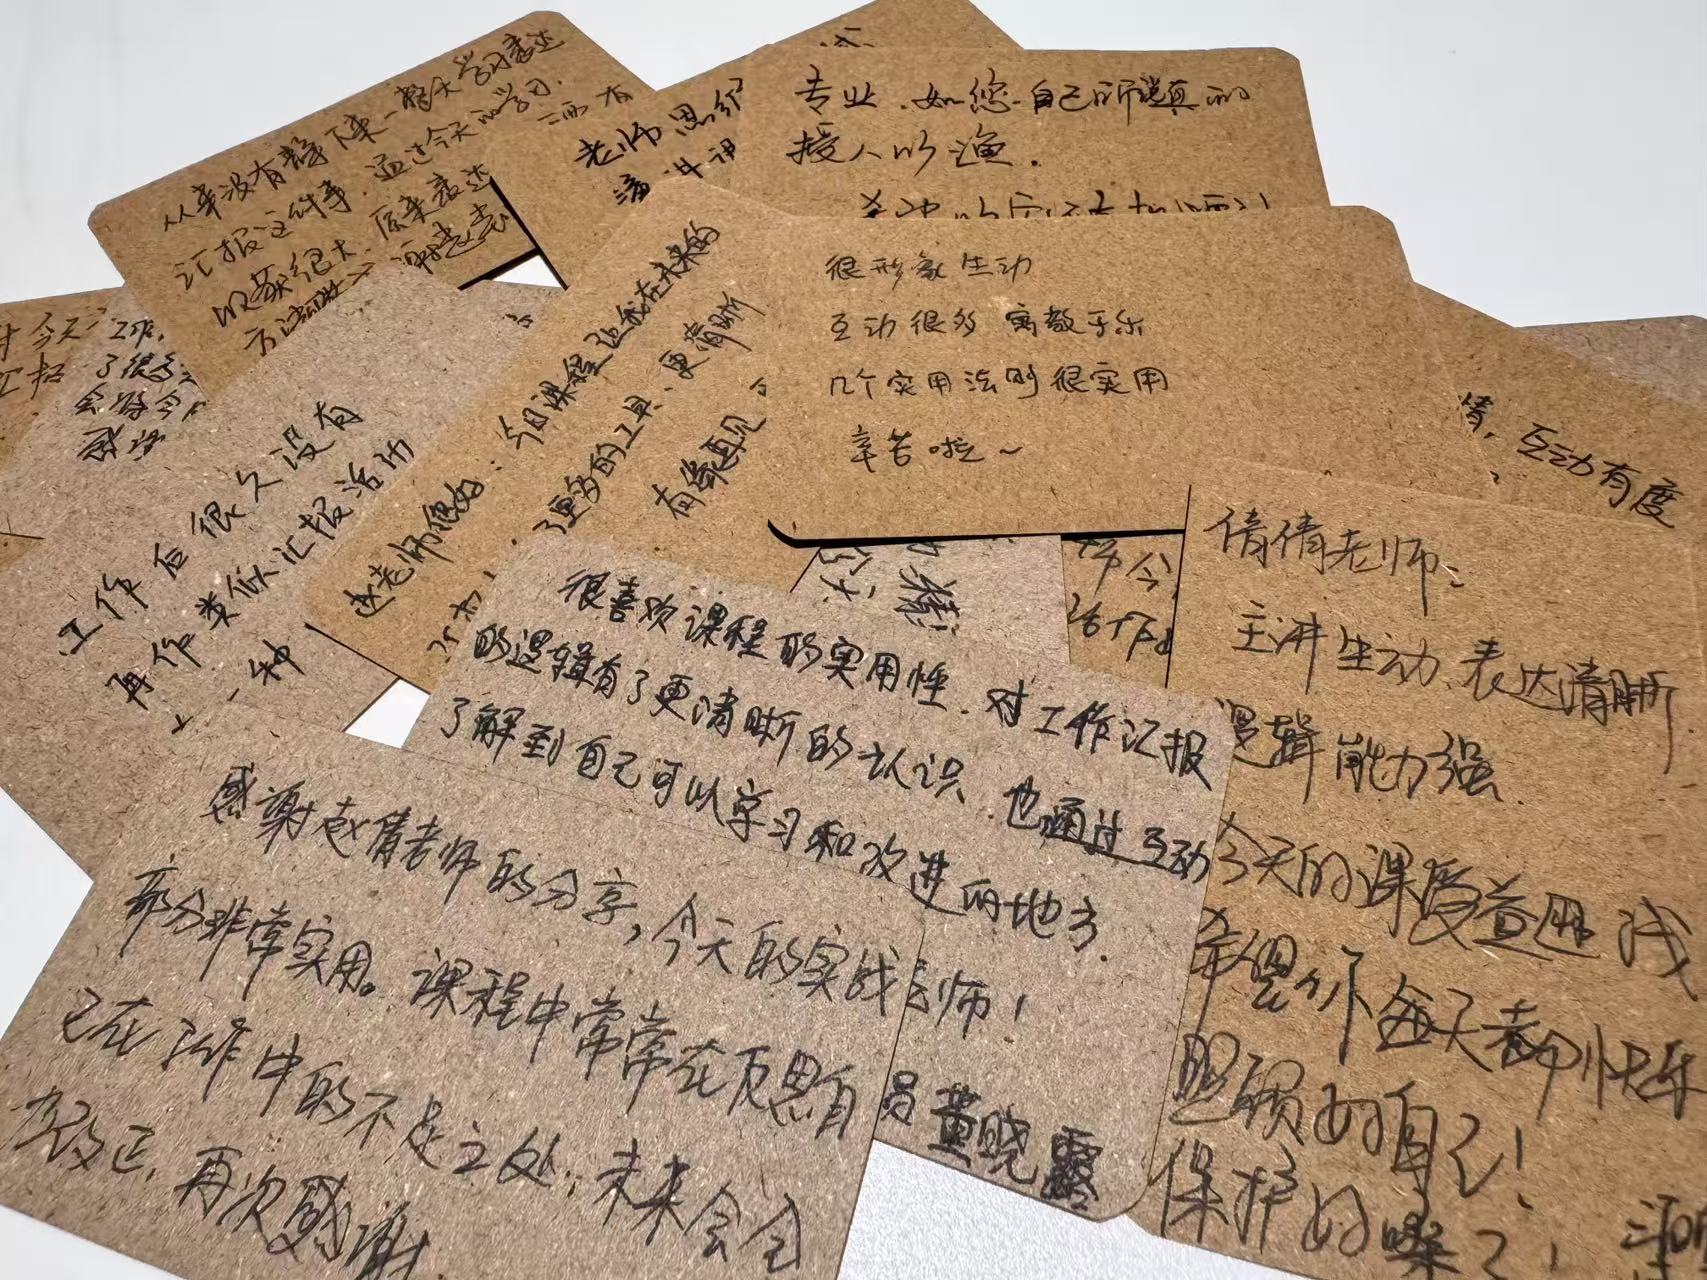 从来没有静下来一整天学习表达
汇报这件事，通过今天的学习，
收获很大，原来表达
老师思
专业，如您自己所说真的
授人以渔。
很形象生动
互动很多 寓教于乐
几个实用法则很实用
辛苦啦~
情，互动有度
今天
了很多
感谢
工作后很久没有
再作类似汇报活动
一种
赵老师您好：今日课程让我在未来的
了更多的工具、更清晰
有缘再见。
倩倩老师：
主讲生动、表达清晰
逻辑能力强
今天的课受益匪浅
希望你每天都快乐
照顾好自己！
保护好嗓子！
很喜欢课程的实用性，对工作汇报
的逻辑有了更清晰的认识，也通过互动
了解到自己可以学习和改进的地方.
老师！
员 董晓露
感谢赵倩老师的分享，今天的实战
部分非常实用。课程中常常在反思自
己在工作中的不足之处，未来会全
力改正，再次感谢